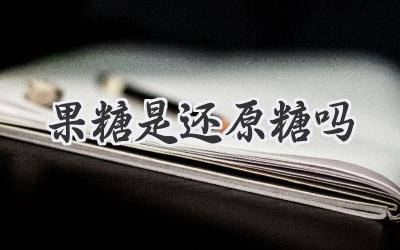 果糖是还原糖吗